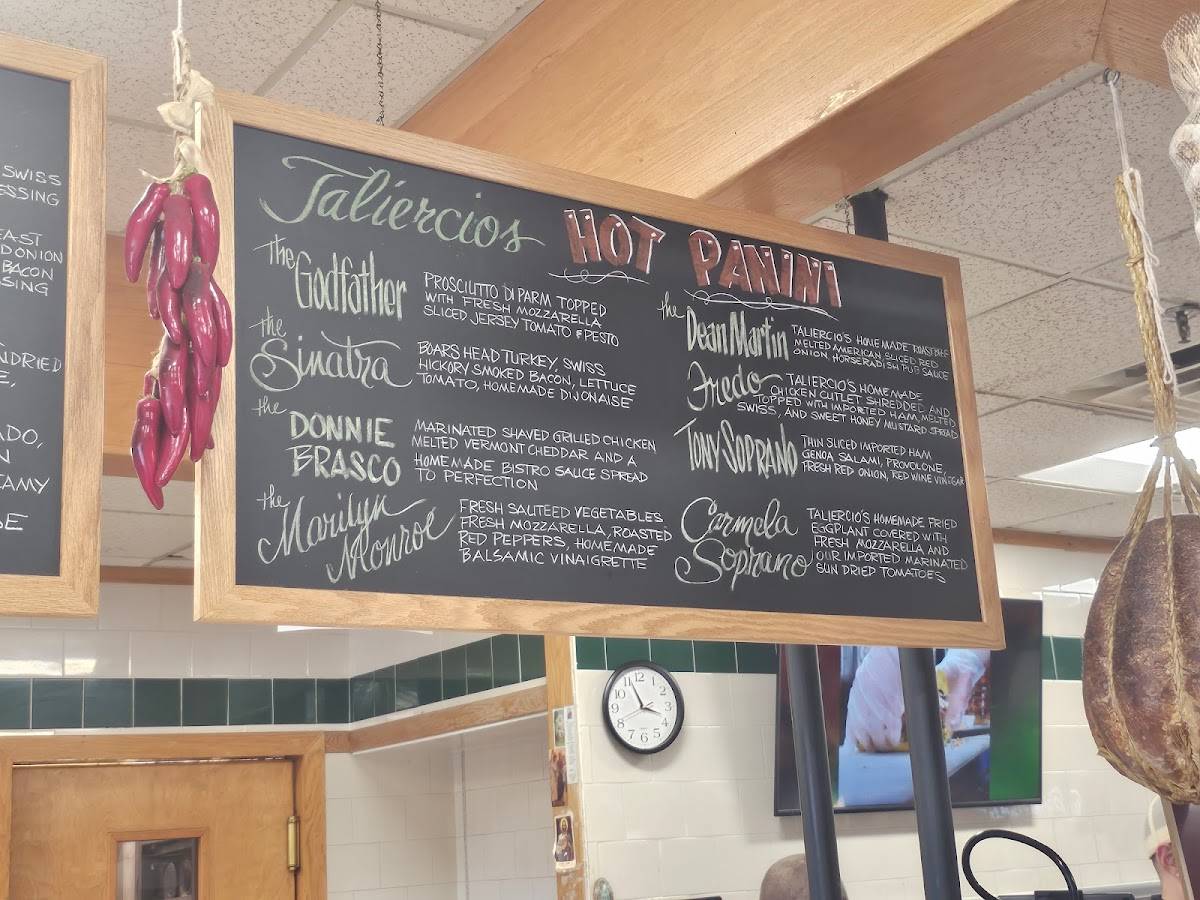 SWISS
ESSING
EAST
D ONION
BACON
SING
NDRIED
E,
ADO,
N
TAMY
SE
Taliercios HOT PANINI
the Godfather
PROSCIUTTO DI PARM TOPPED
WITH FRESH MOZZARELLA
SLICED JERSEY TOMATO & PESTO
the Sinatra
BOARS HEAD TURKEY, SWISS
HICKORY SMOKED BACON, LETTUCE
TOMATO, HOMEMADE DIJONAISE
the
DONNIE
BRASCO
MARINATED SHAVED GRILLED CHICKEN
MELTED VERMONT CHEDDAR AND A
HOMEMADE BISTRO SAUCE SPREAD
TO PERFECTION
the
Marilyn
Monroe
FRESH SAUTEED VEGETABLES
FRESH MOZZARELLA, ROASTED
RED PEPPERS, HOMEMADE
BALSAMIC VINAIGRETTE
the Dean Martin
TALIERCIO'S HOMEMADE ROAST BEEF
MELTED AMERICAN, SLICED RED
ONION, HORSERADISH PUB SAUCE
Fredo
TALIERCIO'S HOMEMADE
CHICKEN CUTLET SHREDDED AND
TOPPED WITH IMPORTED HAM, MELTED
SWISS, AND SWEET HONEY MUSTARD SPREAD
TONY SOPRANO
THIN SLICED IMPORTED HAM
GENOA SALAMI, PROVOLONE,
FRESH RED ONION, RED WINE VINEGAR
Carmela
Soprano
TALIERCIO'S HOMEMADE FRIED
EGGPLANT COVERED WITH
FRESH MOZZARELLA AND
OUR IMPORTED MARINATED
SUN DRIED TOMATOES
12
1
2
3
4
5
6
7
8
9
10
11